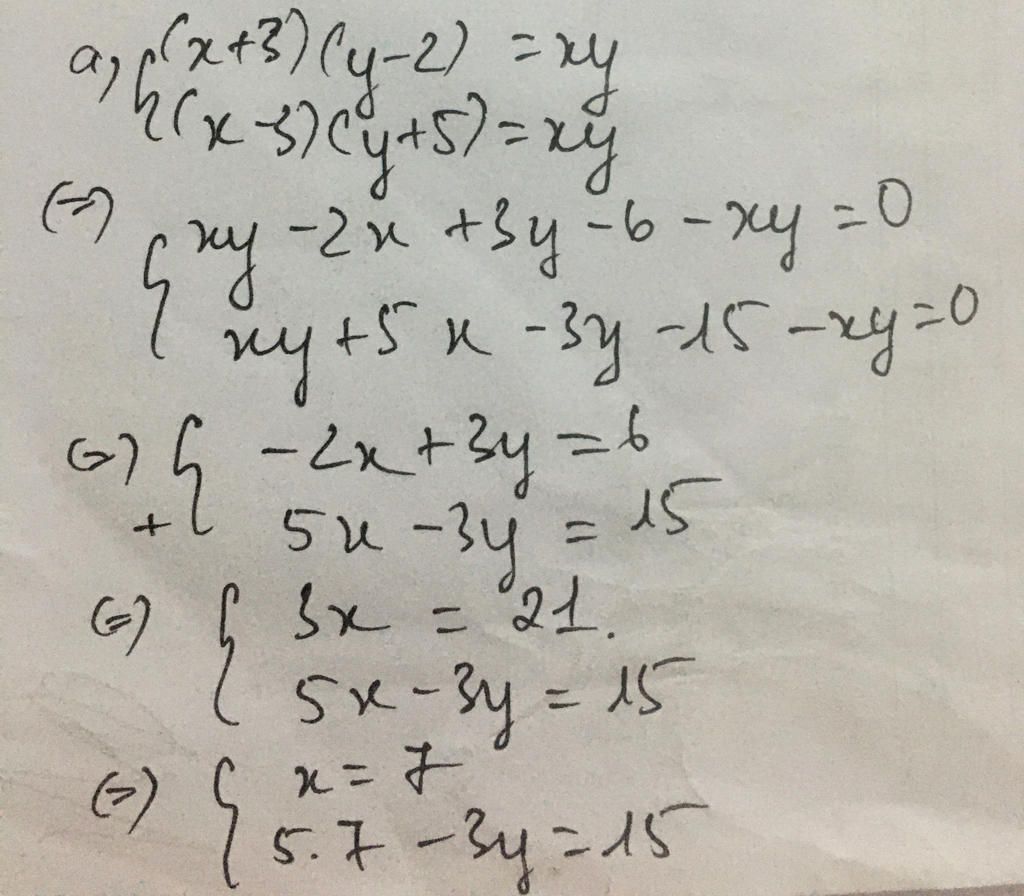 a, { (x+3)(y-2) = xy
(x-3)(y+5) = xy
(=) { xy - 2x + 3y - 6 - xy = 0
xy + 5x - 3y - 15 - xy = 0
(=) { -2x + 3y = 6
+ 5x - 3y = 15
(=) { 3x = 21.
5x - 3y = 15
(=) { x = 7
5.7 - 3y = 15